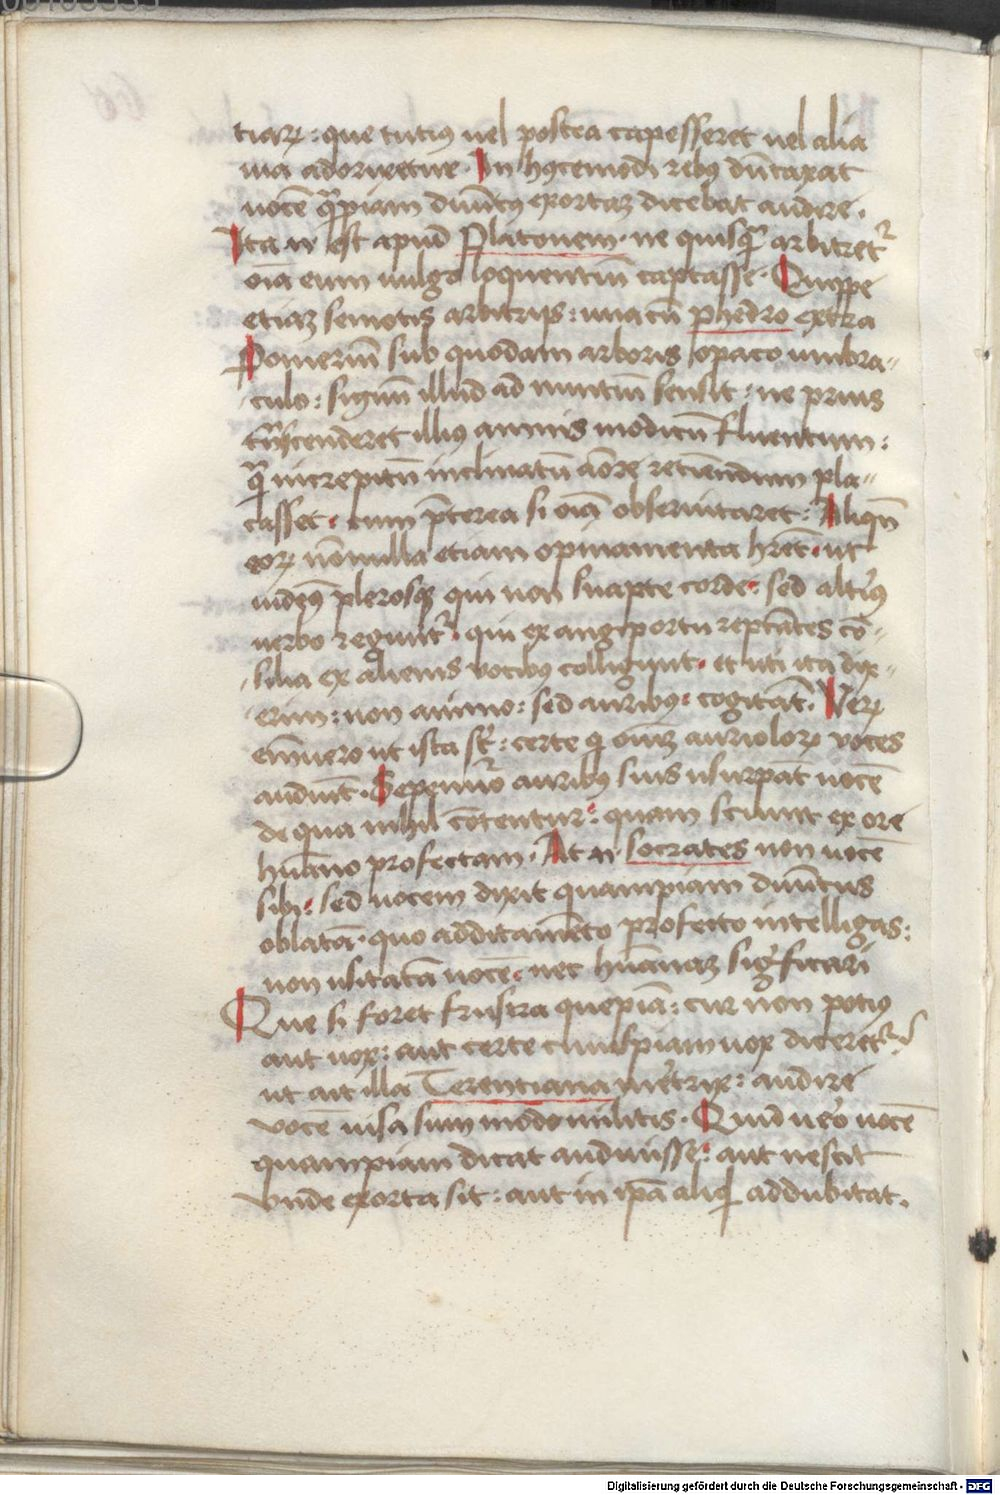 tiaꝝ: que tutiꝰ uel postea capesseret uel alia
uia adorixetur. In hꝰcemodi rebꝰ dūtaxat
uocē q̄mpiam diuitꝰ exortaꝫ dicebat audire.
Ita .n. est apud Platonem. ne quisq̄ arbitretᷣ
oīa eum uulgo loquentiū captasse. Quippe
etiaꝫ semotis arbitrijs: una cū phedro extra
Pomeriū sub quodam arboris opaco umbra-
culo: signū illud ad nuntiū sensit: ne prius
trāscenderet illiꝰ amnis modicū fluentum:
q̄ increpitū inclinatū amorē retiendum pla-
casset. cum p̄terea si oīa obseruitaret: Aliqn̄
eoꝝ nōnulla etiam opinamenta hret̄. ut
uidemꝰ plerosqꝫ qui non suapte corde: sed altiꝰ
uerbo reguntᷣ. qui ex angiportu reptātes cō-
silia ex alienis vocibꝰ colligunt. et uti ita dix-
erim: non animo: sed auribꝰ cogitāt. Veꝝ
enīuero ut ista st̄: certe q oīuꝫ aurioloꝝ voces
audiūt. Sepenuō auribꝰ suis usurpāt uocē
de qua nihil cōtentur: quam sciunt ex ore
humāno profectam. At .n. socrates non uocē
sibi: sed uocem dixit quampiam diuitus
oblatā. quo additamēto profecto intelligas:
non usitatā uocē. nec humanaꝫ significari
Que si foret frustra quepiā: cur non potiꝰ
aut uox: aut certe cuiuspiam uox diceretᷣ?
ut ait illa Terentiana meretrix: audire
vocē uisa sum modo militis. Quid uero uocē
quampiam dicat audiuisse: aut nescit
Vnde exorta sit: aut in ip̄a aliqd addubitat.
Digitalisierung gefördert durch die Deutsche Forschungsgemeinschaft - DFG